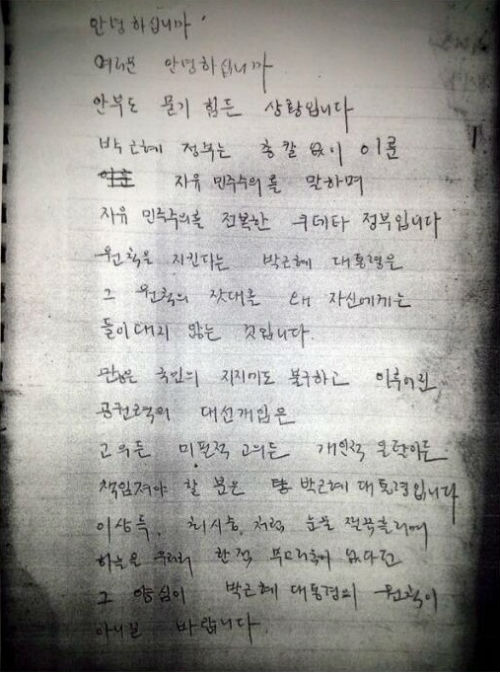 안녕하십니까
여러분 안녕하십니까
안부도 묻기 힘든 상황입니다
박근혜 정부는 총칼 없이 이룬
자유 민주주의를 말하며
자유 민주주의를 전복한 쿠데타 정부입니다
원칙을 지킨다는 박근혜 대통령은
그 원칙의 잣대를 왜 자신에게는
들이대지 않는 것입니다.
많은 국민의 지지에도 불구하고 이루어진
공권력의 대선개입은
고의든 미필적 고의든 개인적 일탈이든
책임져야 할 분은 박근혜 대통령입니다
이상득, 최시중, 처럼 눈물 찔끔흘리며
하늘을 우러러 한점 부끄러움이 없다던
그 양심이 박근혜 대통령의 원칙이
아니길 바랍니다.